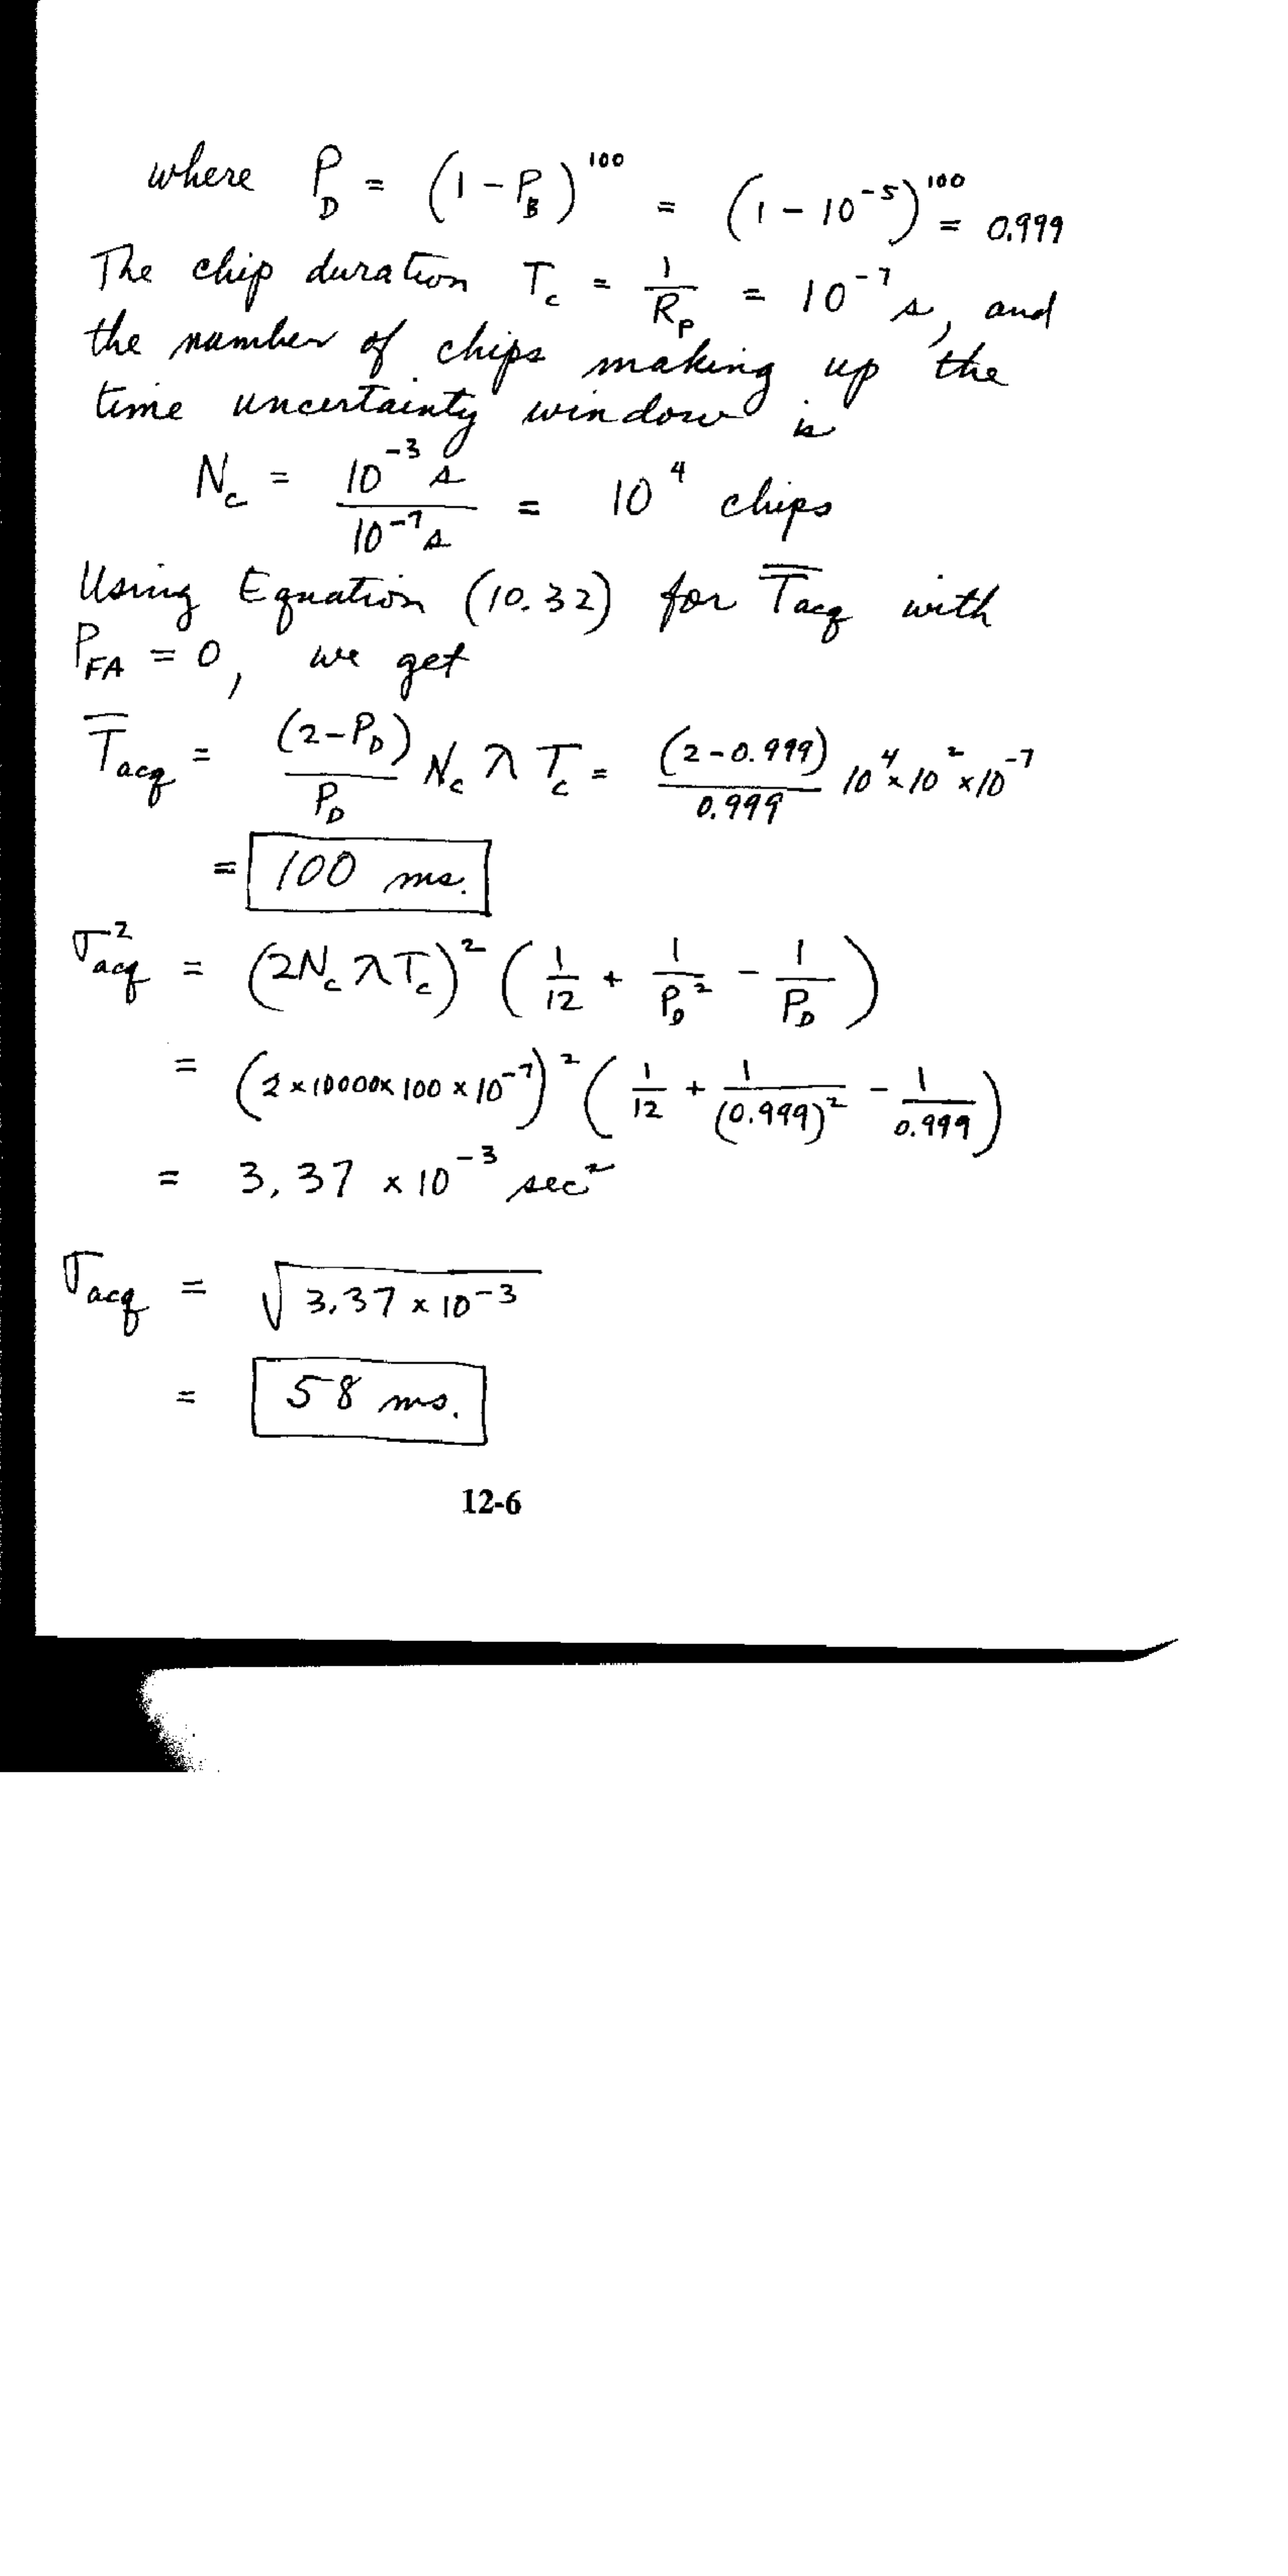 where P_D = (1 - P_B)^100 = (1 - 10^-5)^100 = 0.999
The chip duration T_c = 1/R_p = 10^-7 s, and
the number of chips making up the
time uncertainty window is
N_c = 10^-3 s / 10^-7 s = 10^4 chips
Using Equation (10.32) for T̅_acq with
P_FA = 0, we get
T̅_acq = (2-P_D)/P_D N_c λ T_c = (2-0.999)/0.999 10^4 × 10^2 × 10^-7
= 100 ms.
σ_acq^2 = (2N_c λT_c)^2 (1/12 + 1/P_D^2 - 1/P_D)
= (2 × 10000 × 100 × 10^-7)^2 (1/12 + 1/(0.999)^2 - 1/0.999)
= 3.37 × 10^-3 sec^2
σ_acq = √(3.37 × 10^-3)
= 58 ms.
12-6